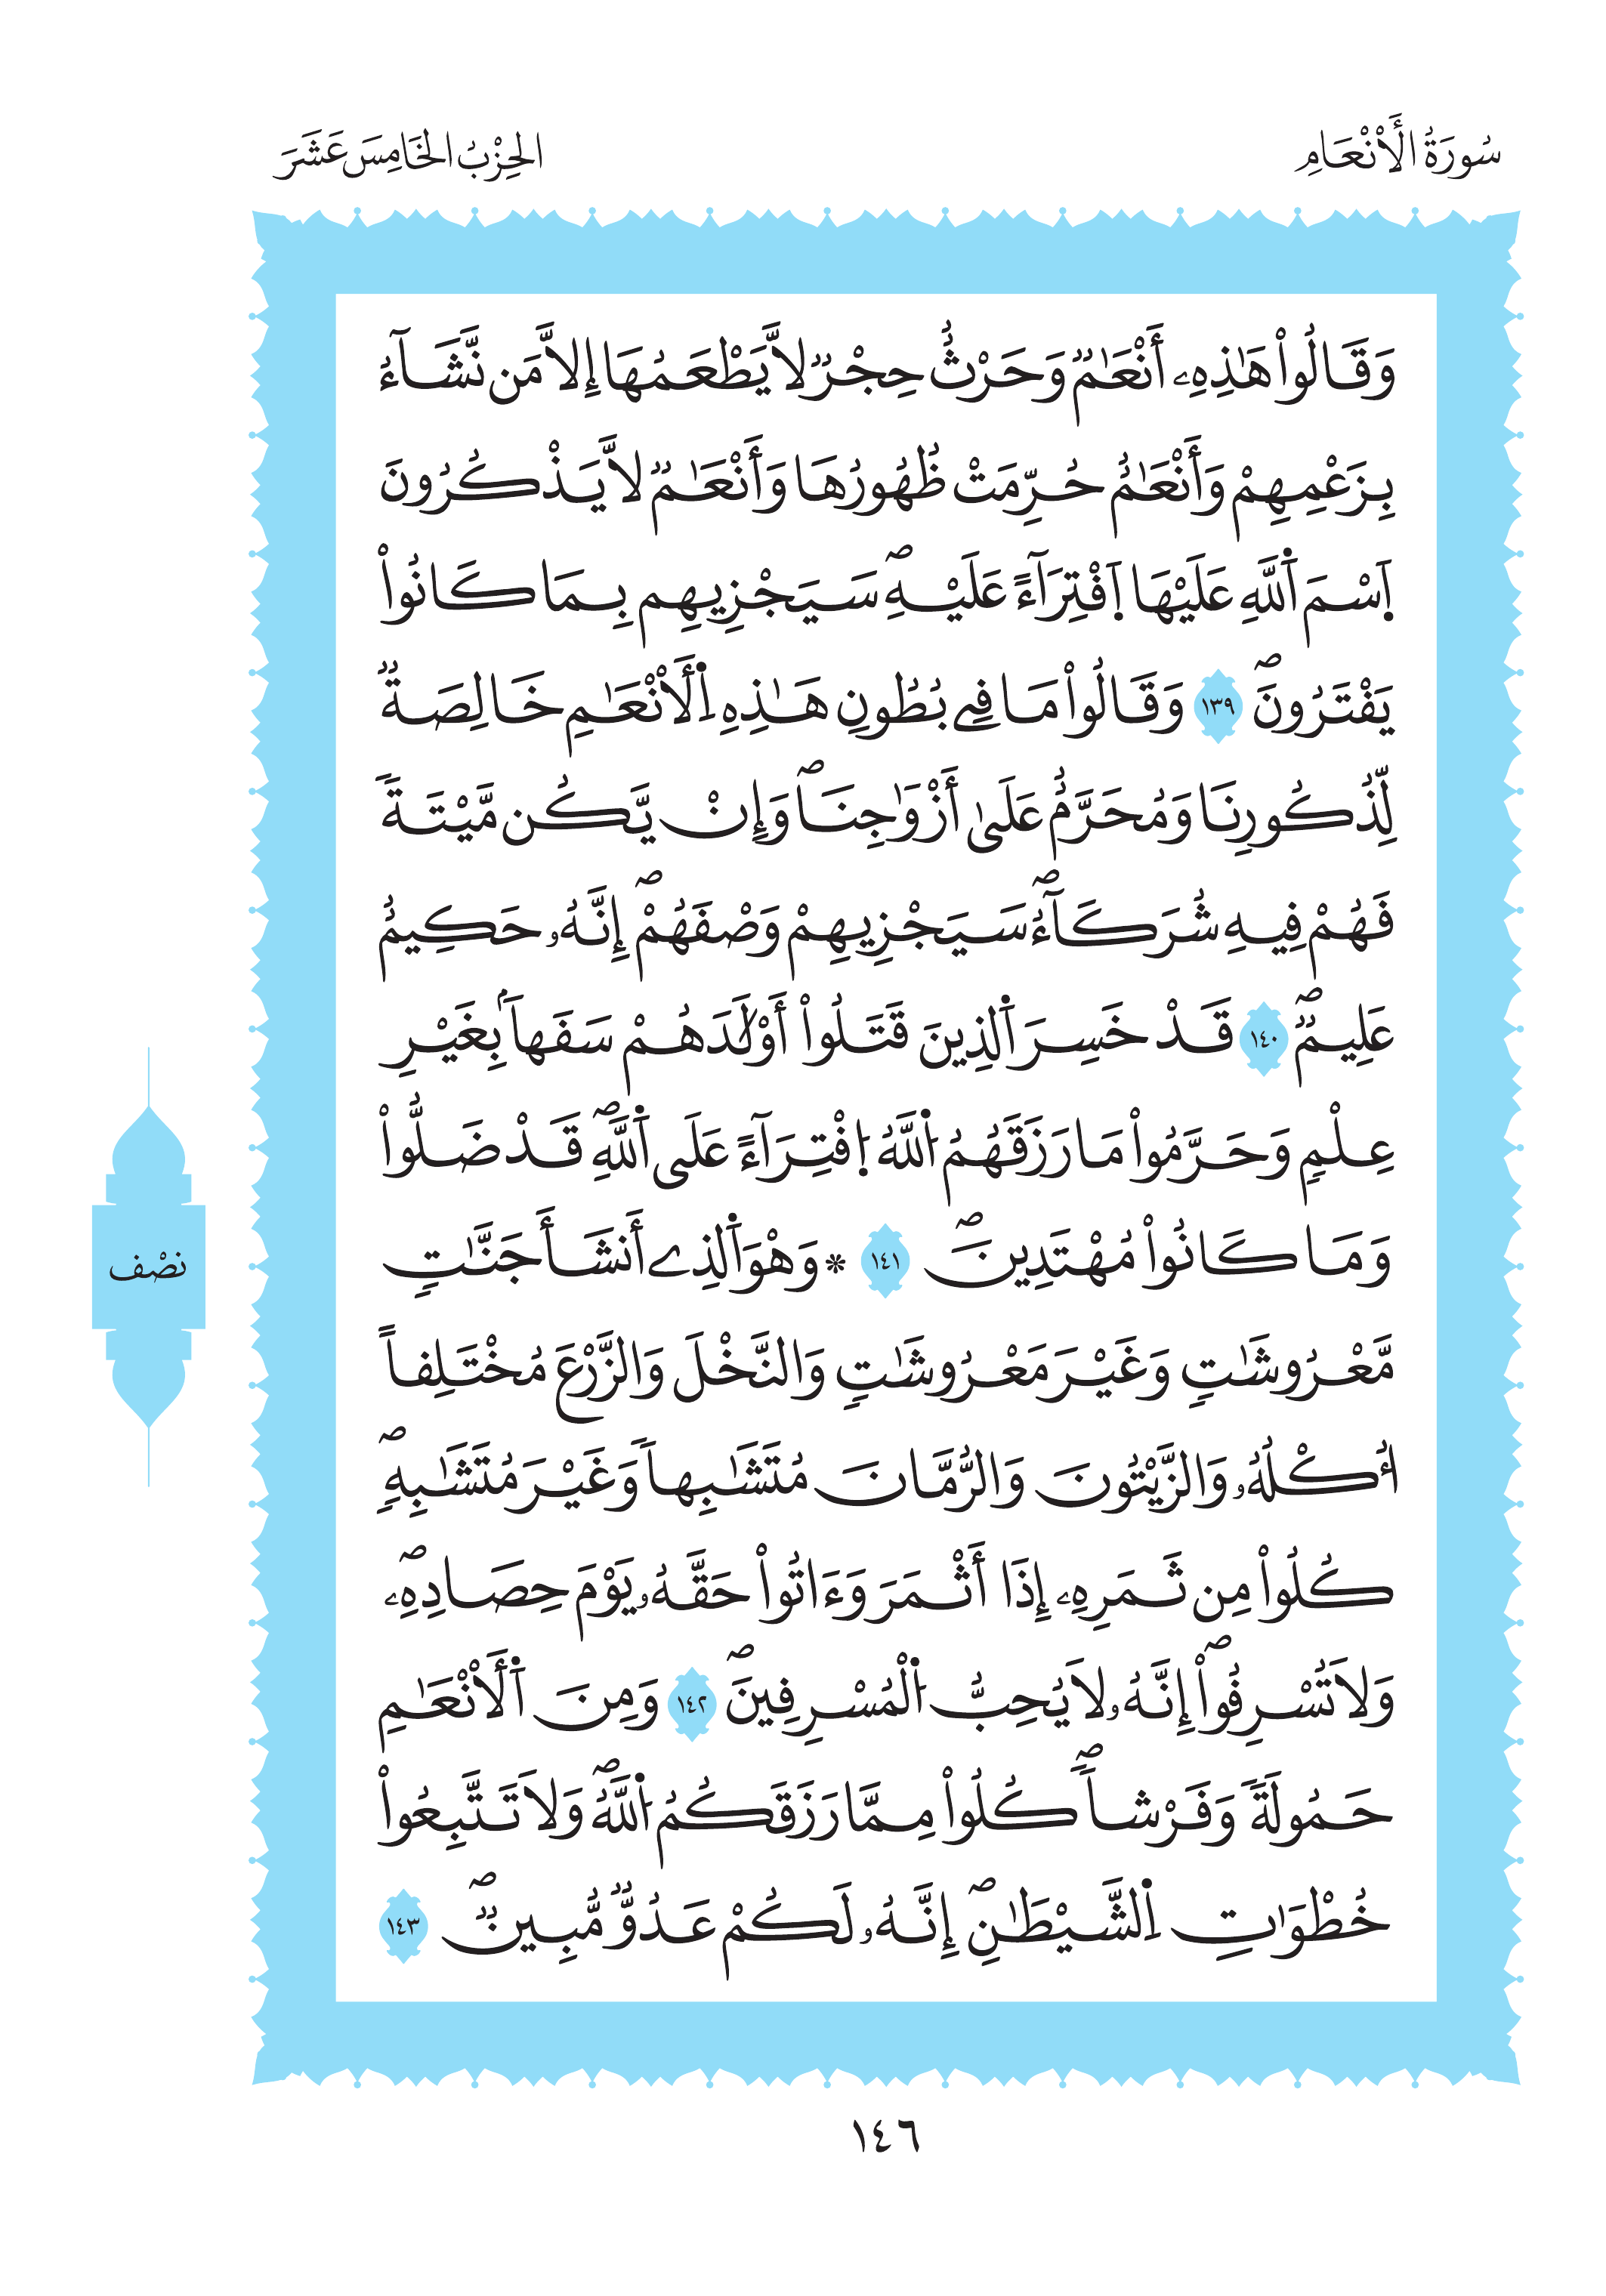 سُورَةُ الْأَنْعَامِ
الْحِزْبُ الْخَامِسَ عَشَرَ
وَقَالُواْ هَٰذِهِۦ أَنْعَٰمٞ وَحَرْثٌ حِجْرٞ لَّا يَطْعَمُهَا إِلَّا مَن نَّشَآءُ
بِزَعْمِهِمْ وَأَنْعَٰمٌ حُرِّمَتْ ظُهُورُهَا وَأَنْعَٰمٞ لَّا يَذْكُرُونَ
اَسْمَ اَ۬للَّهِ عَلَيْهَا اَفْتِرَآءً عَلَيْهِۖ سَيَجْزِيهِم بِمَا كَانُواْ
يَفْتَرُونَۖ ١٣٩ وَقَالُواْ مَا فِے بُطُونِ هَٰذِهِ اِ۬لْأَنْعَٰمِ خَالِصَةٞ
لِّذُكُورِنَا وَمُحَرَّمٌ عَلَىٰ أَزْوَٰجِنَاۖ وَإِنْ يَّكُن مَّيْتَةٗ
فَهُمْ فِيهِ شُرَكَآءُۖ سَيَجْزِيهِمْ وَصْفَهُمْۖ إِنَّهُۥ حَكِيمٌ
عَلِيمٞۖ ١٤٠ قَدْ خَسِرَ اَ۬لذِينَ قَتَلُواْ أَوْلَٰدَهُمْ سَفَهاَۢ بِغَيْرِ
عِلْمٖ وَحَرَّمُواْ مَا رَزَقَهُمُ اُ۬للَّهُ اُ۪فْتِرَآءً عَلَى اَ۬للَّهِۖ قَدْ ضَلُّواْ
وَمَا كَانُواْ مُهْتَدِينَۖ ١٤١ ۞ وَهْوَ اَ۬لذِے أَنشَأَ جَنَّٰتٖ
مَّعْرُوشَٰتٖ وَغَيْرَ مَعْرُوشَٰتٖ وَالنَّخْلَ وَالزَّرْعَ مُخْتَلِفاً
أُكْلُهُۥ وَالزَّيْتُونَ وَالرُّمَّانَ مُتَشَٰبِهاٗ وَغَيْرَ مُتَشَٰبِهٖۖ
كُلُواْ مِن ثَمَرِهِۦ إِذَا أَثْمَرَ وَءَاتُواْ حَقَّهُۥ يَوْمَ حِصَادِهِۦۖ
وَلَا تُسْرِفُواْۖ إِنَّهُۥ لَا يُحِبُّ اُ۬لْمُسْرِفِينَۖ ١٤٢ وَمِنَ اَ۬لْأَنْعَٰمِ
حَمُولَةٗ وَفَرْشاٗۖ كُلُواْ مِمَّا رَزَقَكُمُ اُ۬للَّهُۖ وَلَا تَتَّبِعُواْ
خُطْوَٰتِ اِ۬لشَّيْطَٰنِۖ إِنَّهُۥ لَكُمْ عَدُوّٞ مُّبِينٞۖ ١٤٣
نِصْف
١٤٦